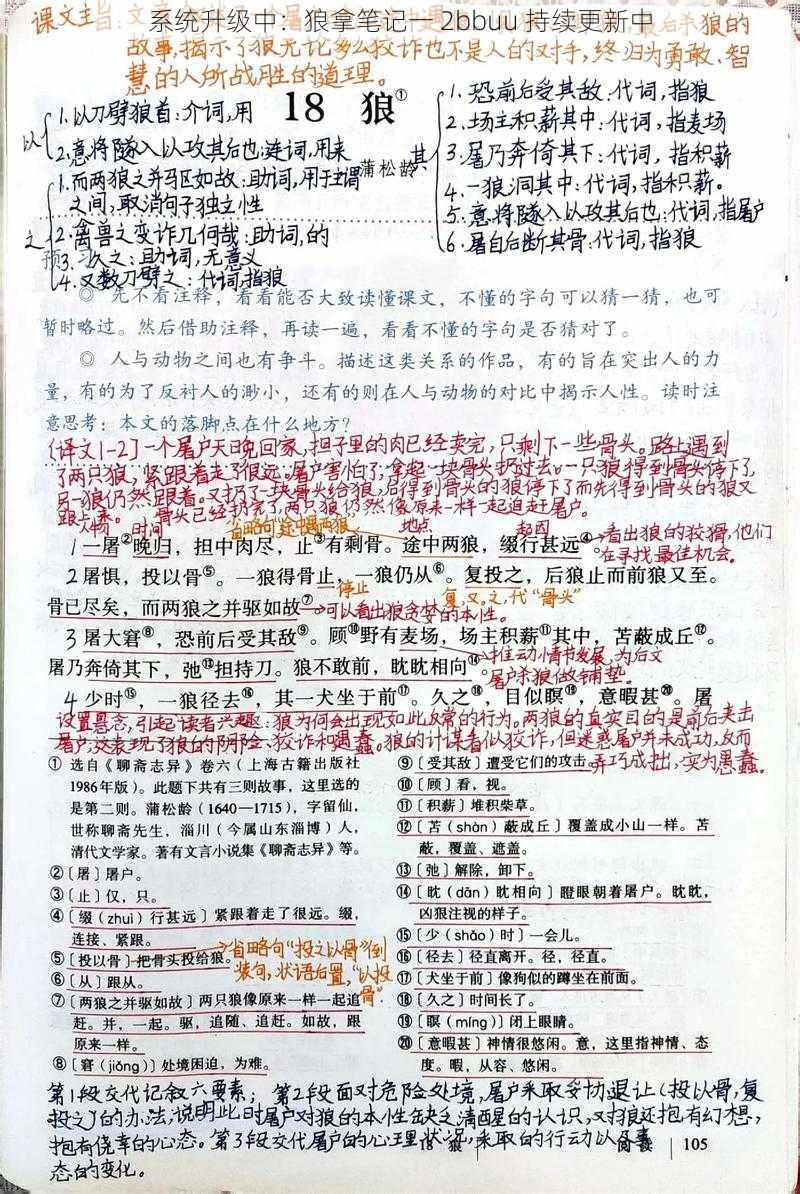 系统升级中：狼拿笔记一 2bbuu 持续更新中
课文主旨：文
狼的
故事，揭示了狼无论多么狡诈也不是人的对手，终归为勇敢、智
慧的人所战胜的道理。
18 狼①
蒲松龄
以
1.以刀劈狼首：介词，用
2.意将隧入以攻其后也：连词，用来
之
1.而两狼之并驱如故：助词，用于主谓
之间，取消句子独立性
2.禽兽之变诈几何哉：助词，的
3.久之：助词，无意义
4.又数刀劈之：代词，指狼
其
1.恐前后受其敌：代词，指狼
2.场主积薪其中：代词，指麦场
3.屠乃奔倚其下：代词，指积薪
4.一狼洞其中：代词，指积薪。
5.意将隧入以攻其后也：代词，指屠户
6.屠自后断其骨：代词，指狼
预习
◎ 先不看注释，看看能否大致读懂课文，不懂的字句可以猜一猜，也可
暂时略过。然后借助注释，再读一遍，看看不懂的字句是否猜对了。
◎ 人与动物之间也有争斗。描述这类关系的作品，有的旨在突出人的力
量，有的为了反衬人的渺小，还有的则在人与动物的对比中揭示人性。读时注
意思考：本文的落脚点在什么地方？
[译文1-2]一个屠户天晚回家，担子里的肉已经卖完，只剩下一些骨头。路上遇到
了两只狼，紧跟着走了很远。屠户害怕了，拿起一块骨头扔过去。一只狼得到骨头停下了，
另一狼仍然跟着。又扔了一块骨头给狼，后得到骨头的狼停下了而先得到骨头的狼又
跟上来。骨头已经扔完了，两只狼仍然像原来一样一起追赶屠户。
时间
省略句途中遇两狼
地点
起因
1一屠②晚归，担中肉尽，止③有剩骨。途中两狼，缀行甚远④。
看出狼的狡猾，他们
在寻找最佳机会。
2屠惧，投以骨⑤。一狼得骨止，一狼仍从⑥。复投之，后狼止而前狼又至。
停止
复，又。之，代“骨头”
骨已尽矣，而两狼之并驱如故⑦。
可以看出狼贪婪的本性。
3屠大窘⑧，恐前后受其敌⑨。顾⑩野有麦场，场主积薪⑪其中，苫蔽成丘⑫。
屠乃奔倚其下，弛⑬担持刀。狼不敢前，眈眈相向⑭。
推动情节发展，为后文
屠户杀狼做铺垫。
4少时⑮，一狼径去⑯，其一犬坐于前⑰。久之⑱，目似瞑⑲，意暇甚⑳。屠
设置悬念，引起读者兴趣：狼为何会出现如此反常的行为。两狼的真实目的是前后夹击
屠户，这表现了狼的阴险、狡诈和愚蠢。狼的计谋看似狡诈，但迷惑屠户并未成功，反而
弄巧成拙，实为愚蠢。
① 选自《聊斋志异》卷六（上海古籍出版社
1986年版）。此题下共有三则故事，这里选的
是第二则。蒲松龄（1640—1715），字留仙，
世称聊斋先生，淄川（今属山东淄博）人，
清代文学家。著有文言小说集《聊斋志异》等。
②〔屠〕屠户。
③〔止〕仅，只。
④〔缀（zhuì）行甚远〕紧跟着走了很远。缀，
连接、紧跟。
⑤〔投以骨〕把骨头投给狼。
省略句“投之以骨”倒
装句，状语后置，“以骨投”
⑥〔从〕跟从。
⑦〔两狼之并驱如故〕两只狼像原来一样一起追
赶。并，一起。驱，追随、追赶。如故，跟
原来一样。
⑧〔窘（jiǒng）〕处境困迫，为难。
⑨〔受其敌〕遭受它们的攻击。
⑩〔顾〕看，视。
⑪〔积薪〕堆积柴草。
⑫〔苫（shàn）蔽成丘〕覆盖成小山一样。苫
蔽，覆盖、遮盖。
⑬〔弛〕解除，卸下。
⑭〔眈（dān）眈相向〕瞪眼朝着屠户。眈眈，
凶狠注视的样子。
⑮〔少（shǎo）时〕一会儿。
⑯〔径去〕径直离开。径，径直。
⑰〔犬坐于前〕像狗似的蹲坐在前面。
⑱〔久之〕时间长了。
⑲〔瞑（míng）〕闭上眼睛。
⑳〔意暇甚〕神情很悠闲。意，这里指神情、态
度。暇，从容、悠闲。
第1段交代记叙六要素；第2段面对危险处境，屠户采取妥协退让（投以骨，复
投之）的办法，说明此时屠户对狼的本性缺乏清醒的认识，对狼还抱有幻想，
抱有侥幸的心态。第3段交代屠户的心理状况，采取的行动以及
态的变化。
18 狼
阅读 105